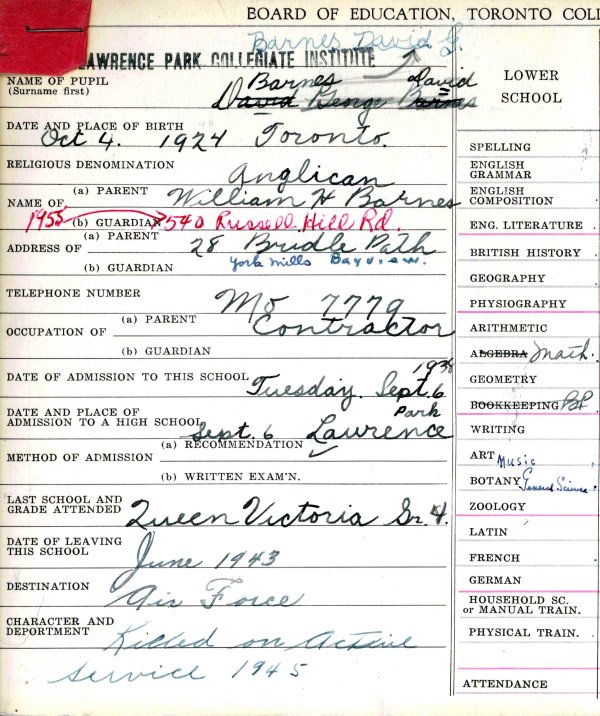 BOARD OF EDUCATION, TORONTO COLL
Barnes David G.
LAWRENCE PARK COLLEGIATE INSTITUTE
NAME OF PUPIL
(Surname first)
Barnes David
David George Barnes
DATE AND PLACE OF BIRTH
Oct 4. 1924 Toronto.
RELIGIOUS DENOMINATION
Anglican
NAME OF (a) PARENT William H Barnes
1955 (b) GUARDIAN 540 Russell Hill Rd.
ADDRESS OF (a) PARENT 28 Bridle Path
(b) GUARDIAN York Mills Bayview.
TELEPHONE NUMBER
Mo 7779
OCCUPATION OF (a) PARENT Contractor
(b) GUARDIAN
DATE OF ADMISSION TO THIS SCHOOL Tuesday. Sept. 6 1938
DATE AND PLACE OF
ADMISSION TO A HIGH SCHOOL Sept. 6 Lawrence Park
METHOD OF ADMISSION (a) RECOMMENDATION ✓
(b) WRITTEN EXAM'N.
LAST SCHOOL AND
GRADE ATTENDED Queen Victoria Gr. 4.
DATE OF LEAVING
THIS SCHOOL June 1943
DESTINATION Air Force
CHARACTER AND
DEPORTMENT Killed on Active
service 1945
LOWER
SCHOOL
SPELLING
ENGLISH
GRAMMAR
ENGLISH
COMPOSITION
ENG. LITERATURE
BRITISH HISTORY
GEOGRAPHY
PHYSIOGRAPHY
ARITHMETIC
ALGEBRA Math.
GEOMETRY
BOOKKEEPING BP
WRITING
ART Music
BOTANY General Science
ZOOLOGY
LATIN
FRENCH
GERMAN
HOUSEHOLD SC.
or MANUAL TRAIN.
PHYSICAL TRAIN.
ATTENDANCE